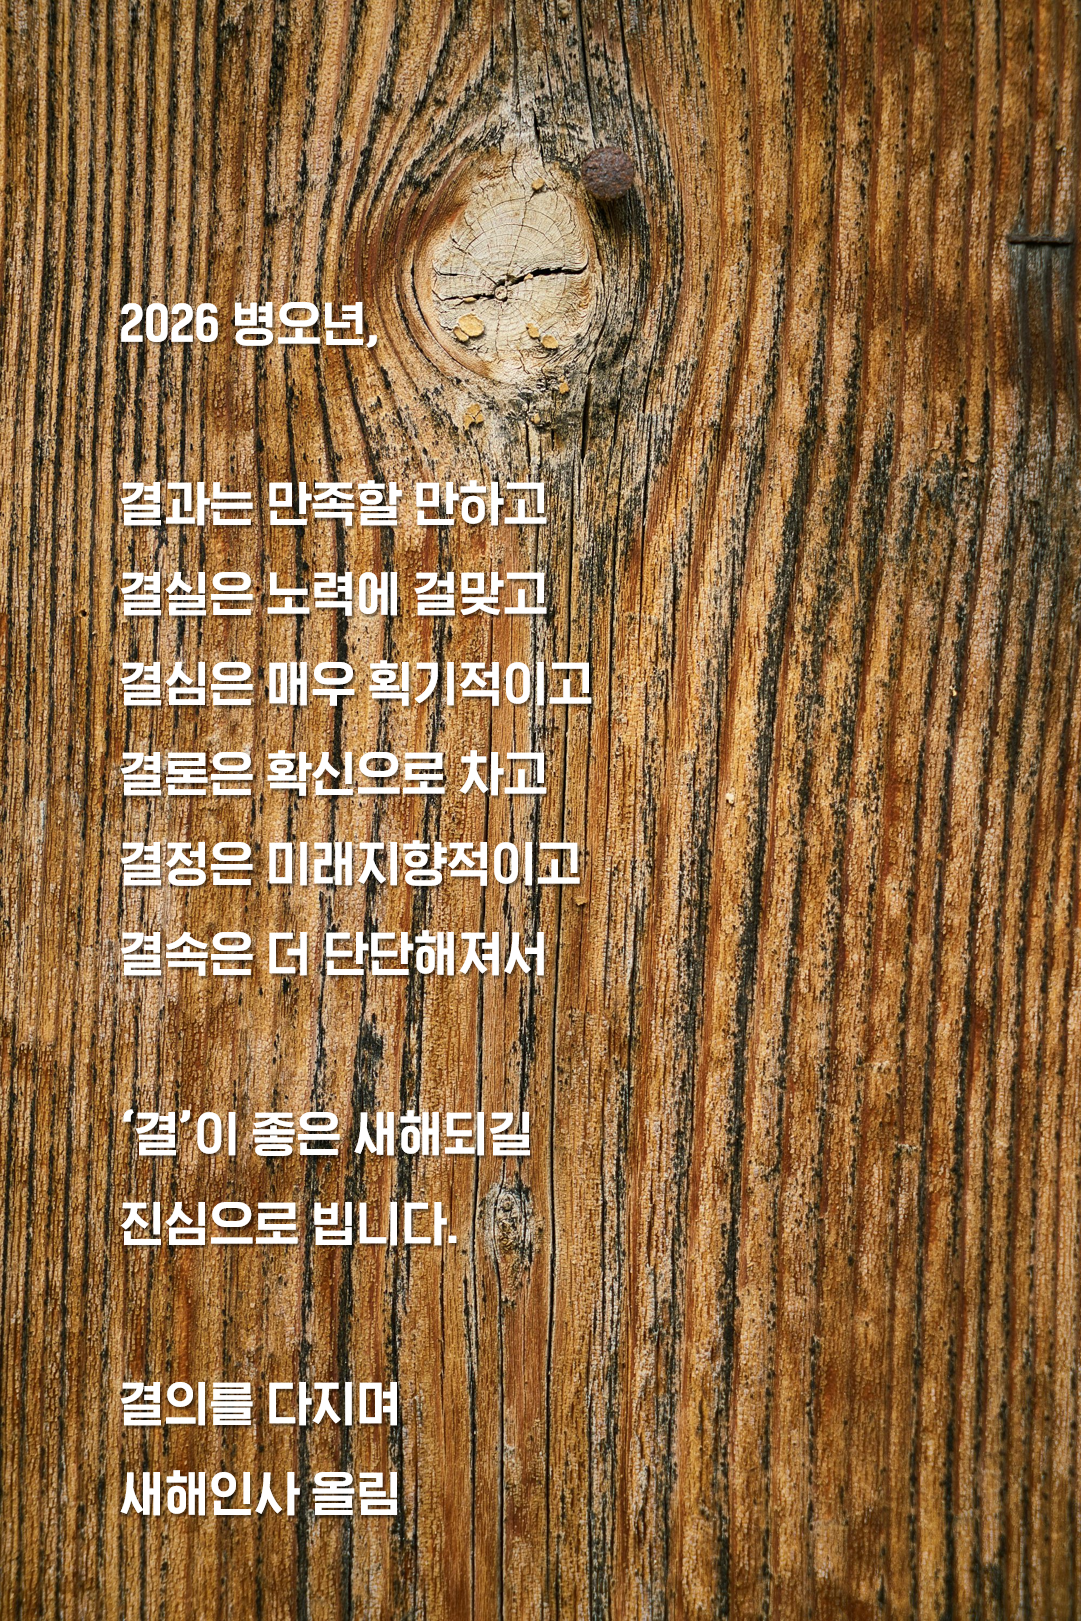 2026 병오년,
결과는 만족할 만하고
결실은 노력에 걸맞고
결심은 매우 획기적이고
결론은 확신으로 차고
결정은 미래지향적이고
결속은 더 단단해져서
‘결’이 좋은 새해되길
진심으로 빕니다.
결의를 다지며
새해인사 올림